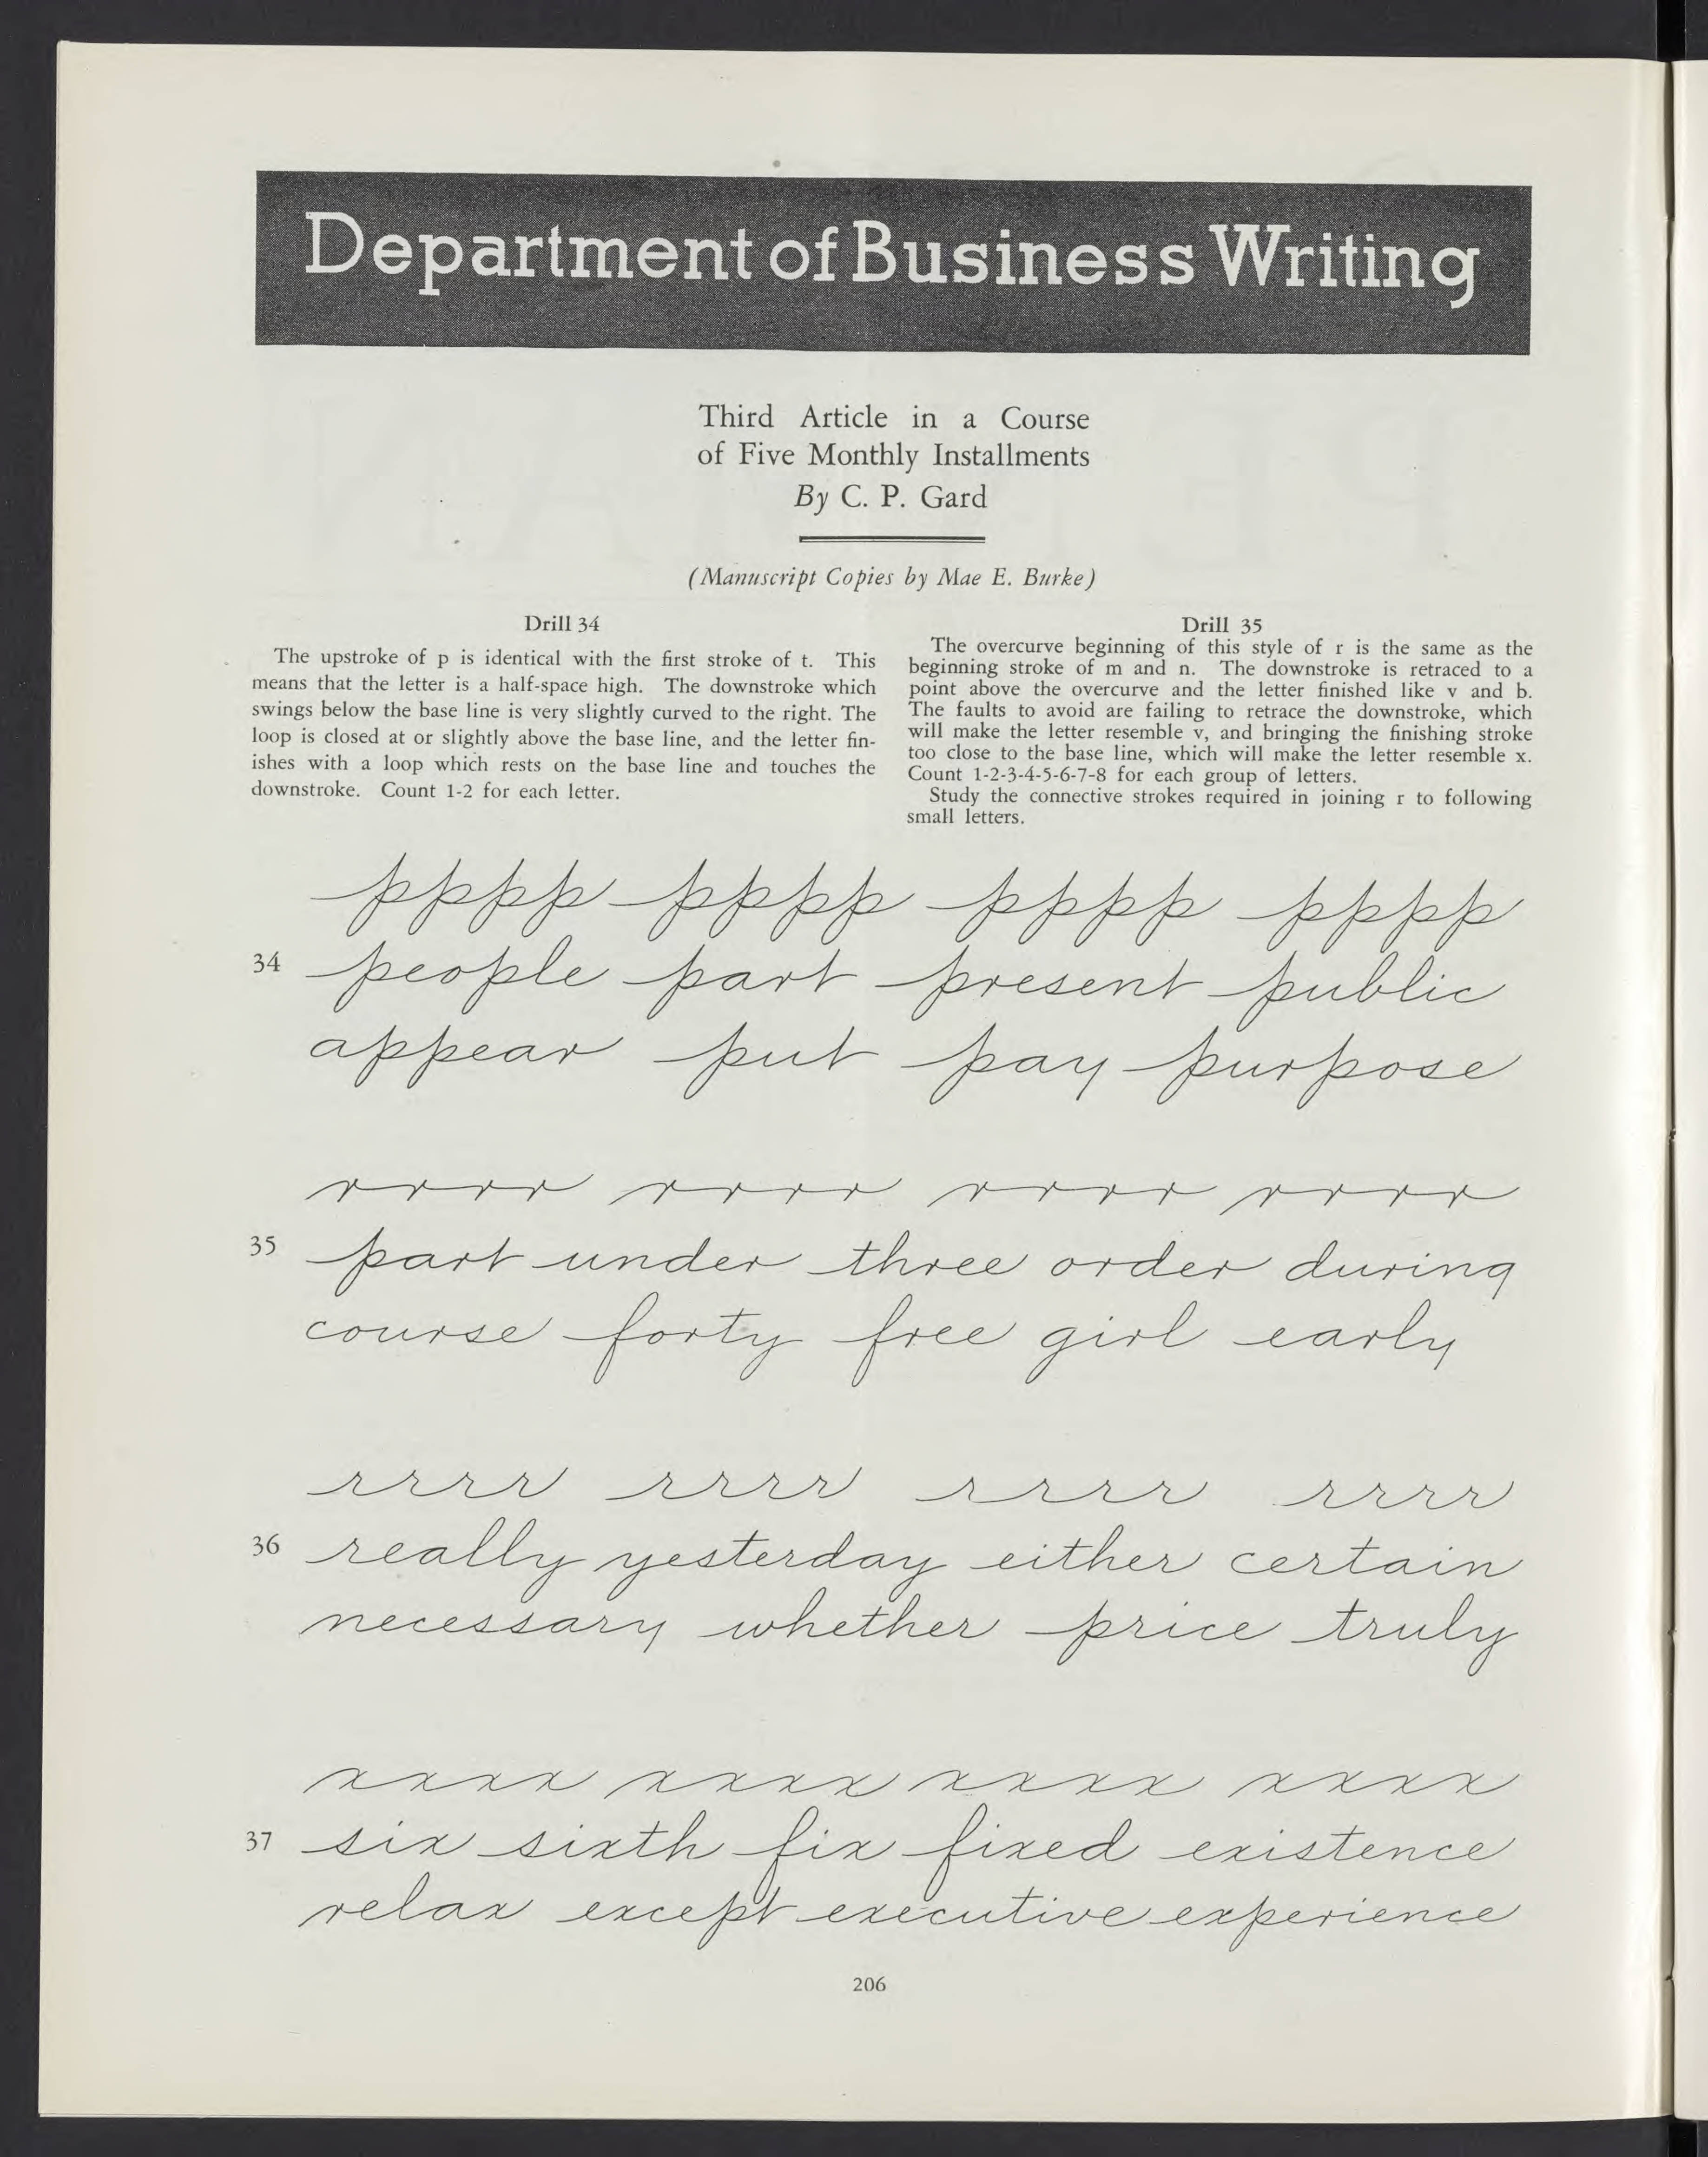 Department of Business Writing
Third Article in a Course
of Five Monthly Installments
By C. P. Gard
(Manuscript Copies by Mae E. Burke)
Drill 34
The upstroke of p is identical with the first stroke of t. This
means that the letter is a half-space high. The downstroke which
swings below the base line is very slightly curved to the right. The
loop is closed at or slightly above the base line, and the letter fin-
ishes with a loop which rests on the base line and touches the
downstroke. Count 1-2 for each letter.
Drill 35
The overcurve beginning of this style of r is the same as the
beginning stroke of m and n. The downstroke is retraced to a
point above the overcurve and the letter finished like v and b.
The faults to avoid are failing to retrace the downstroke, which
will make the letter resemble v, and bringing the finishing stroke
too close to the base line, which will make the letter resemble x.
Count 1-2-3-4-5-6-7-8 for each group of letters.
Study the connective strokes required in joining r to following
small letters.
pppp pppp pppp pppp
34 people part present public
appear put pay purpose
rrrr rrrr rrrr rrrr
35 part under three order during
course forty free girl early
rrrr rrrr rrrr rrrr
36 really yesterday either certain
necessary whether price truly
xxxx xxxx xxxx xxxx
37 six sixth fix fixed existence
relax except executive experience
206